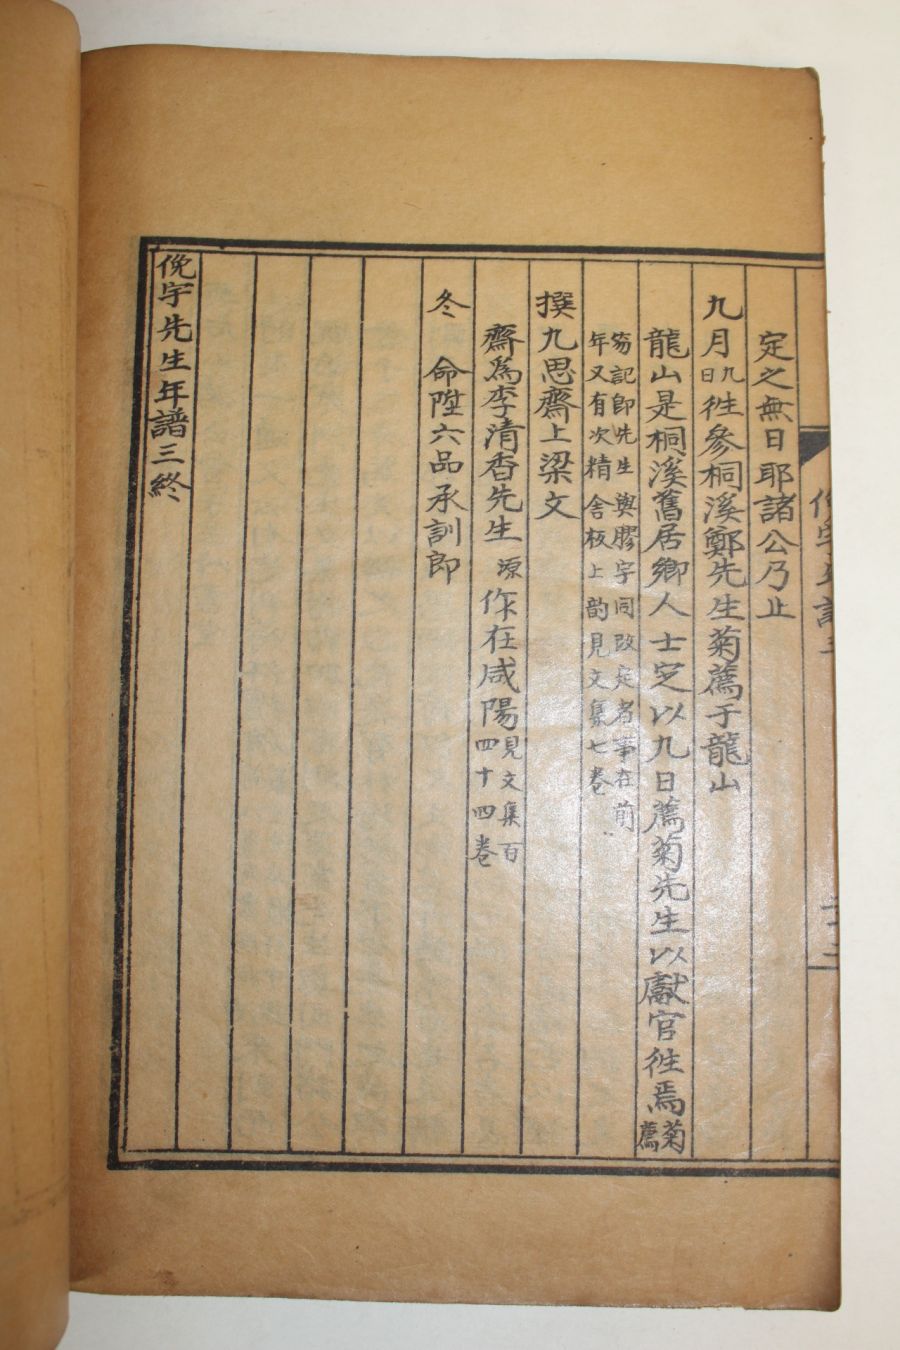 定之無日耶諸公乃止
九月九日徃參桐溪鄭先生菊薦于龍山
龍山是桐溪舊居鄉人士定以九日薦菊先生以獻官徃焉菊薦
記即先生與膠宇同改定者事在前
年又有次精舍板上韵見文集七卷
撰九思齋上梁文
齋爲李清香先生源作在咸陽見文集百四十四卷
冬 命陞六品承訓郎
俛宇先生年譜三終